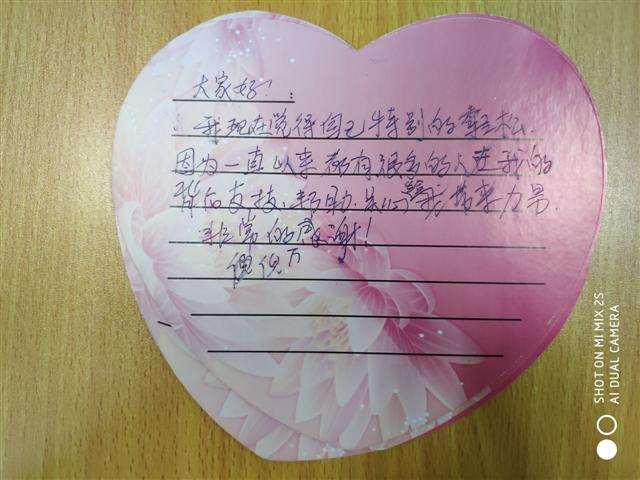 大家好！：
我现在觉得自己特别的轻松.
因为一直以来都有很多的人在我的
背后支持、帮助、给我带来力量.
非常的感谢！
SHOT ON MI MIX 2S
AI DUAL CAMERA